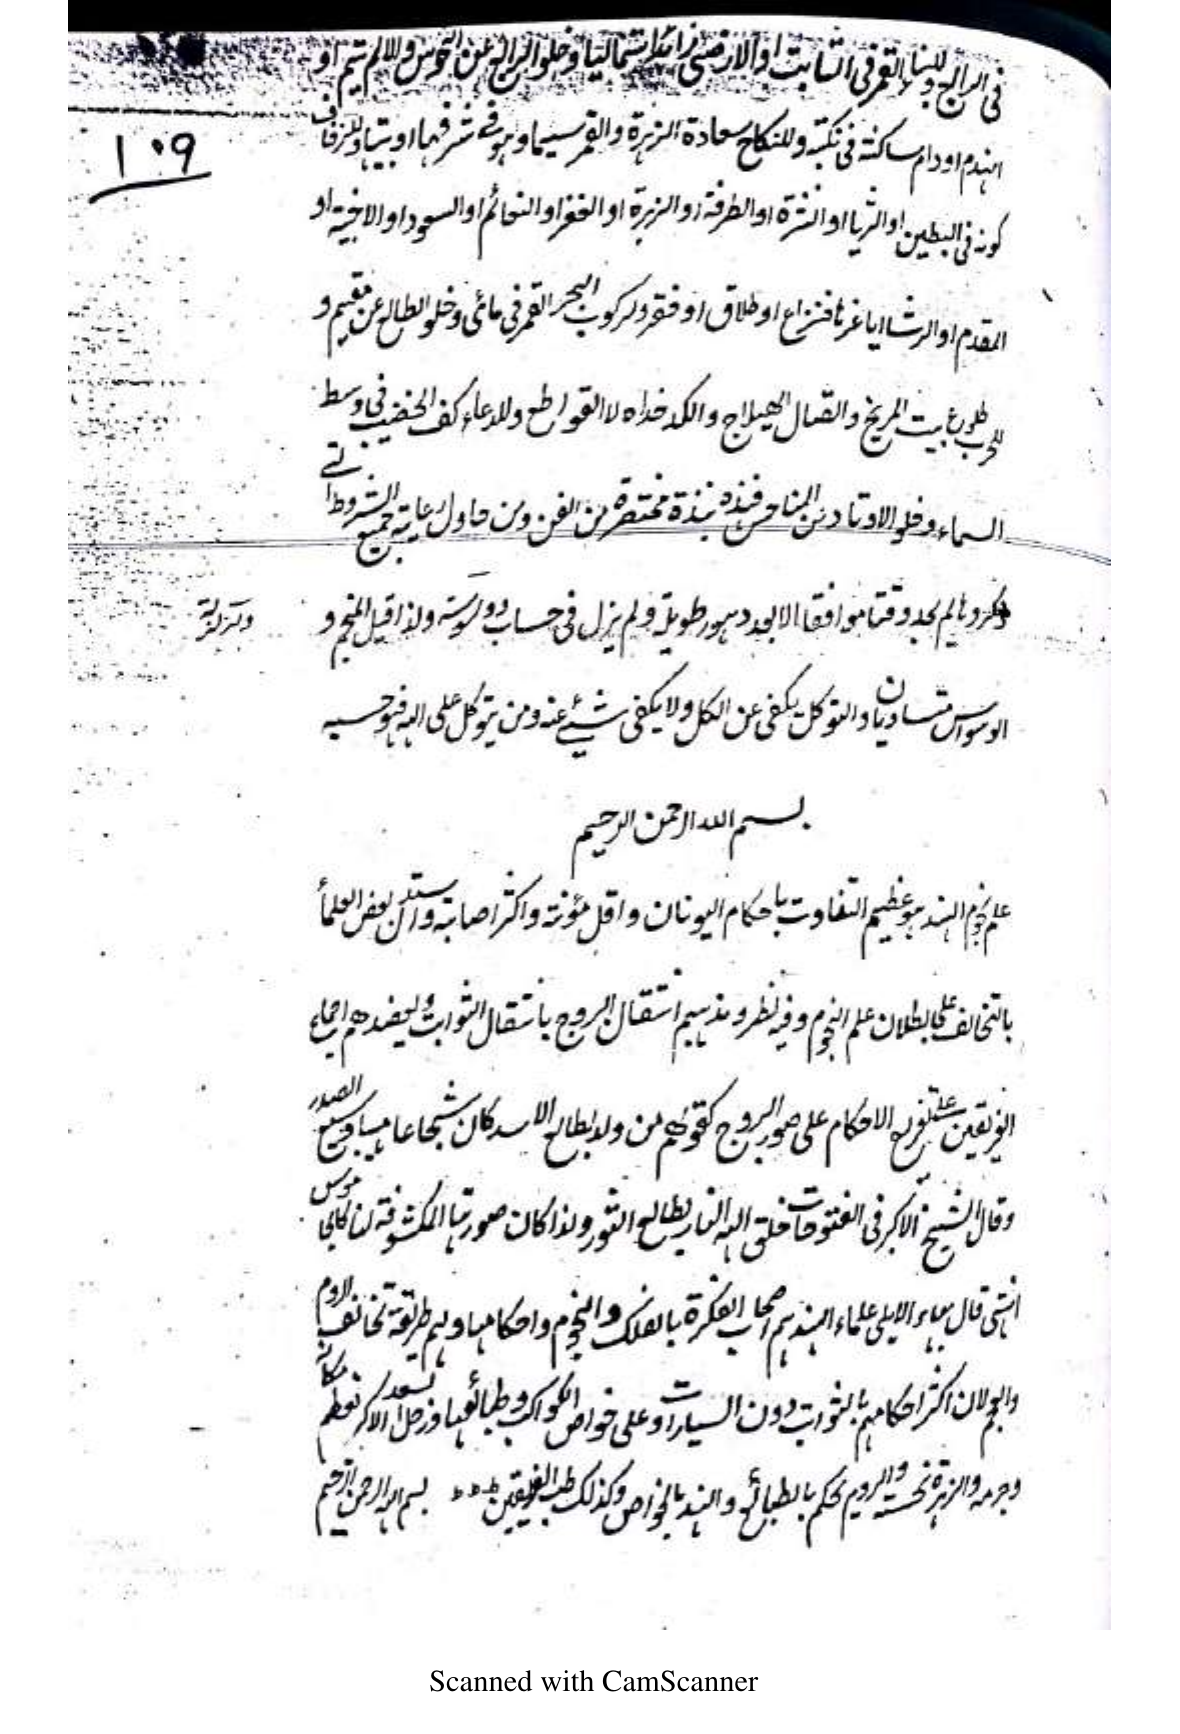 في الرابع وللبناء القمر في الثابت او الارضي زائدا شماليا وخلو الرابع عن النحوس والا لم يتم او
انهدم او دام ساكنه في نكبة وللنكاح سعادة الزهرة والقمر سيما وهو في شرفهما او بيتها وللزفاف
١٠٩
كونه في البطين او الثريا او النثرة او الطرفة او الزبرة او الغفر او النعائم او السعود او الاخبية او
المقدم او الرشا اياغرها فنزاع او طلاق او فقر ولركوب البحر القمر في مائى وخلو الطالع عن مقيم و
للحرب طلوع بيت المريخ واتصال الهيلاج والكدخداه لا القواطع وللدعاء كف الخضيب في وسط
السماء وخلو الاوتاد من المناحس فهذه نبذة مختصرة من الفن ومن حاول رعاية جميع الشروط التي
ذكروها لم يجد وقتا موافقا الا بعد دهور طويلة ولم يزل في حساب ووسوسة ولذا قيل المنجم و
الموسوس متساويان والتوكل يكفى عن الكل ولا يكفى شئ عنه ومن يتوكل على الله فهو حسبه
بسم الله الرحمن الرحيم
علم نجوم الهند هو عظيم التفاوت باحكام اليونان واقل مؤنة واكثر اصابة واستدل بعض العلماء
بالتخالف على بطلان علم النجوم وفيه نظر ومذهبهم انتقال البروج بانتقال الثوابت ويعضدهم اجماع
الفريقين على تفريع الاحكام على صور البروج كقولهم من ولد بطالع الاسد كان شجاعا مهيبا وسيع الصدر
وقال الشيخ الاكبر في الفتوحات خلق الله النار بطالع الثور ولذا كان صورتها المكشوفة لنا كالجاموس
انتهى قال بهاء الايلى علماء الهند هم اصحاب الفكرة بالفلك والنجوم واحكامها ولهم طريقة تخالف الروم
والعجم لان اكثر احكامهم بالثوابت دون السيارات وعلى خواص الكواكب وطبائعها وزحل السعد الاكبر لعظم مكانه
وجرمه والزهرة نحسة والروم يحكم بالطبائع والهند بالخواص وكذلك طب الفريقين بسم الله الرحمن الرحيم
Scanned with CamScanner